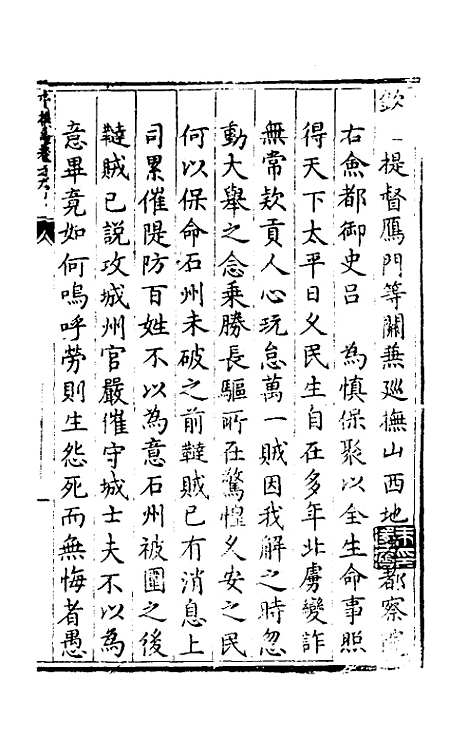 欽 提督鴈門等關兼巡撫山西地 都察院
右僉都御史呂 為慎保聚以全生命事照
得天下太平日乆民生自在多年北虜變詐
無常欵貢人心玩怠萬一賊因我解之時忽
動大舉之念乗勝長驅所在驚惶乆安之民
何以保命石州未破之前韃賊已有消息上
司累催隄防百姓不以為意石州被圍之後
韃賊已説攻城州官嚴催守城士夫不以為
意畢竟如何嗚呼勞則生怨死而無悔者愚